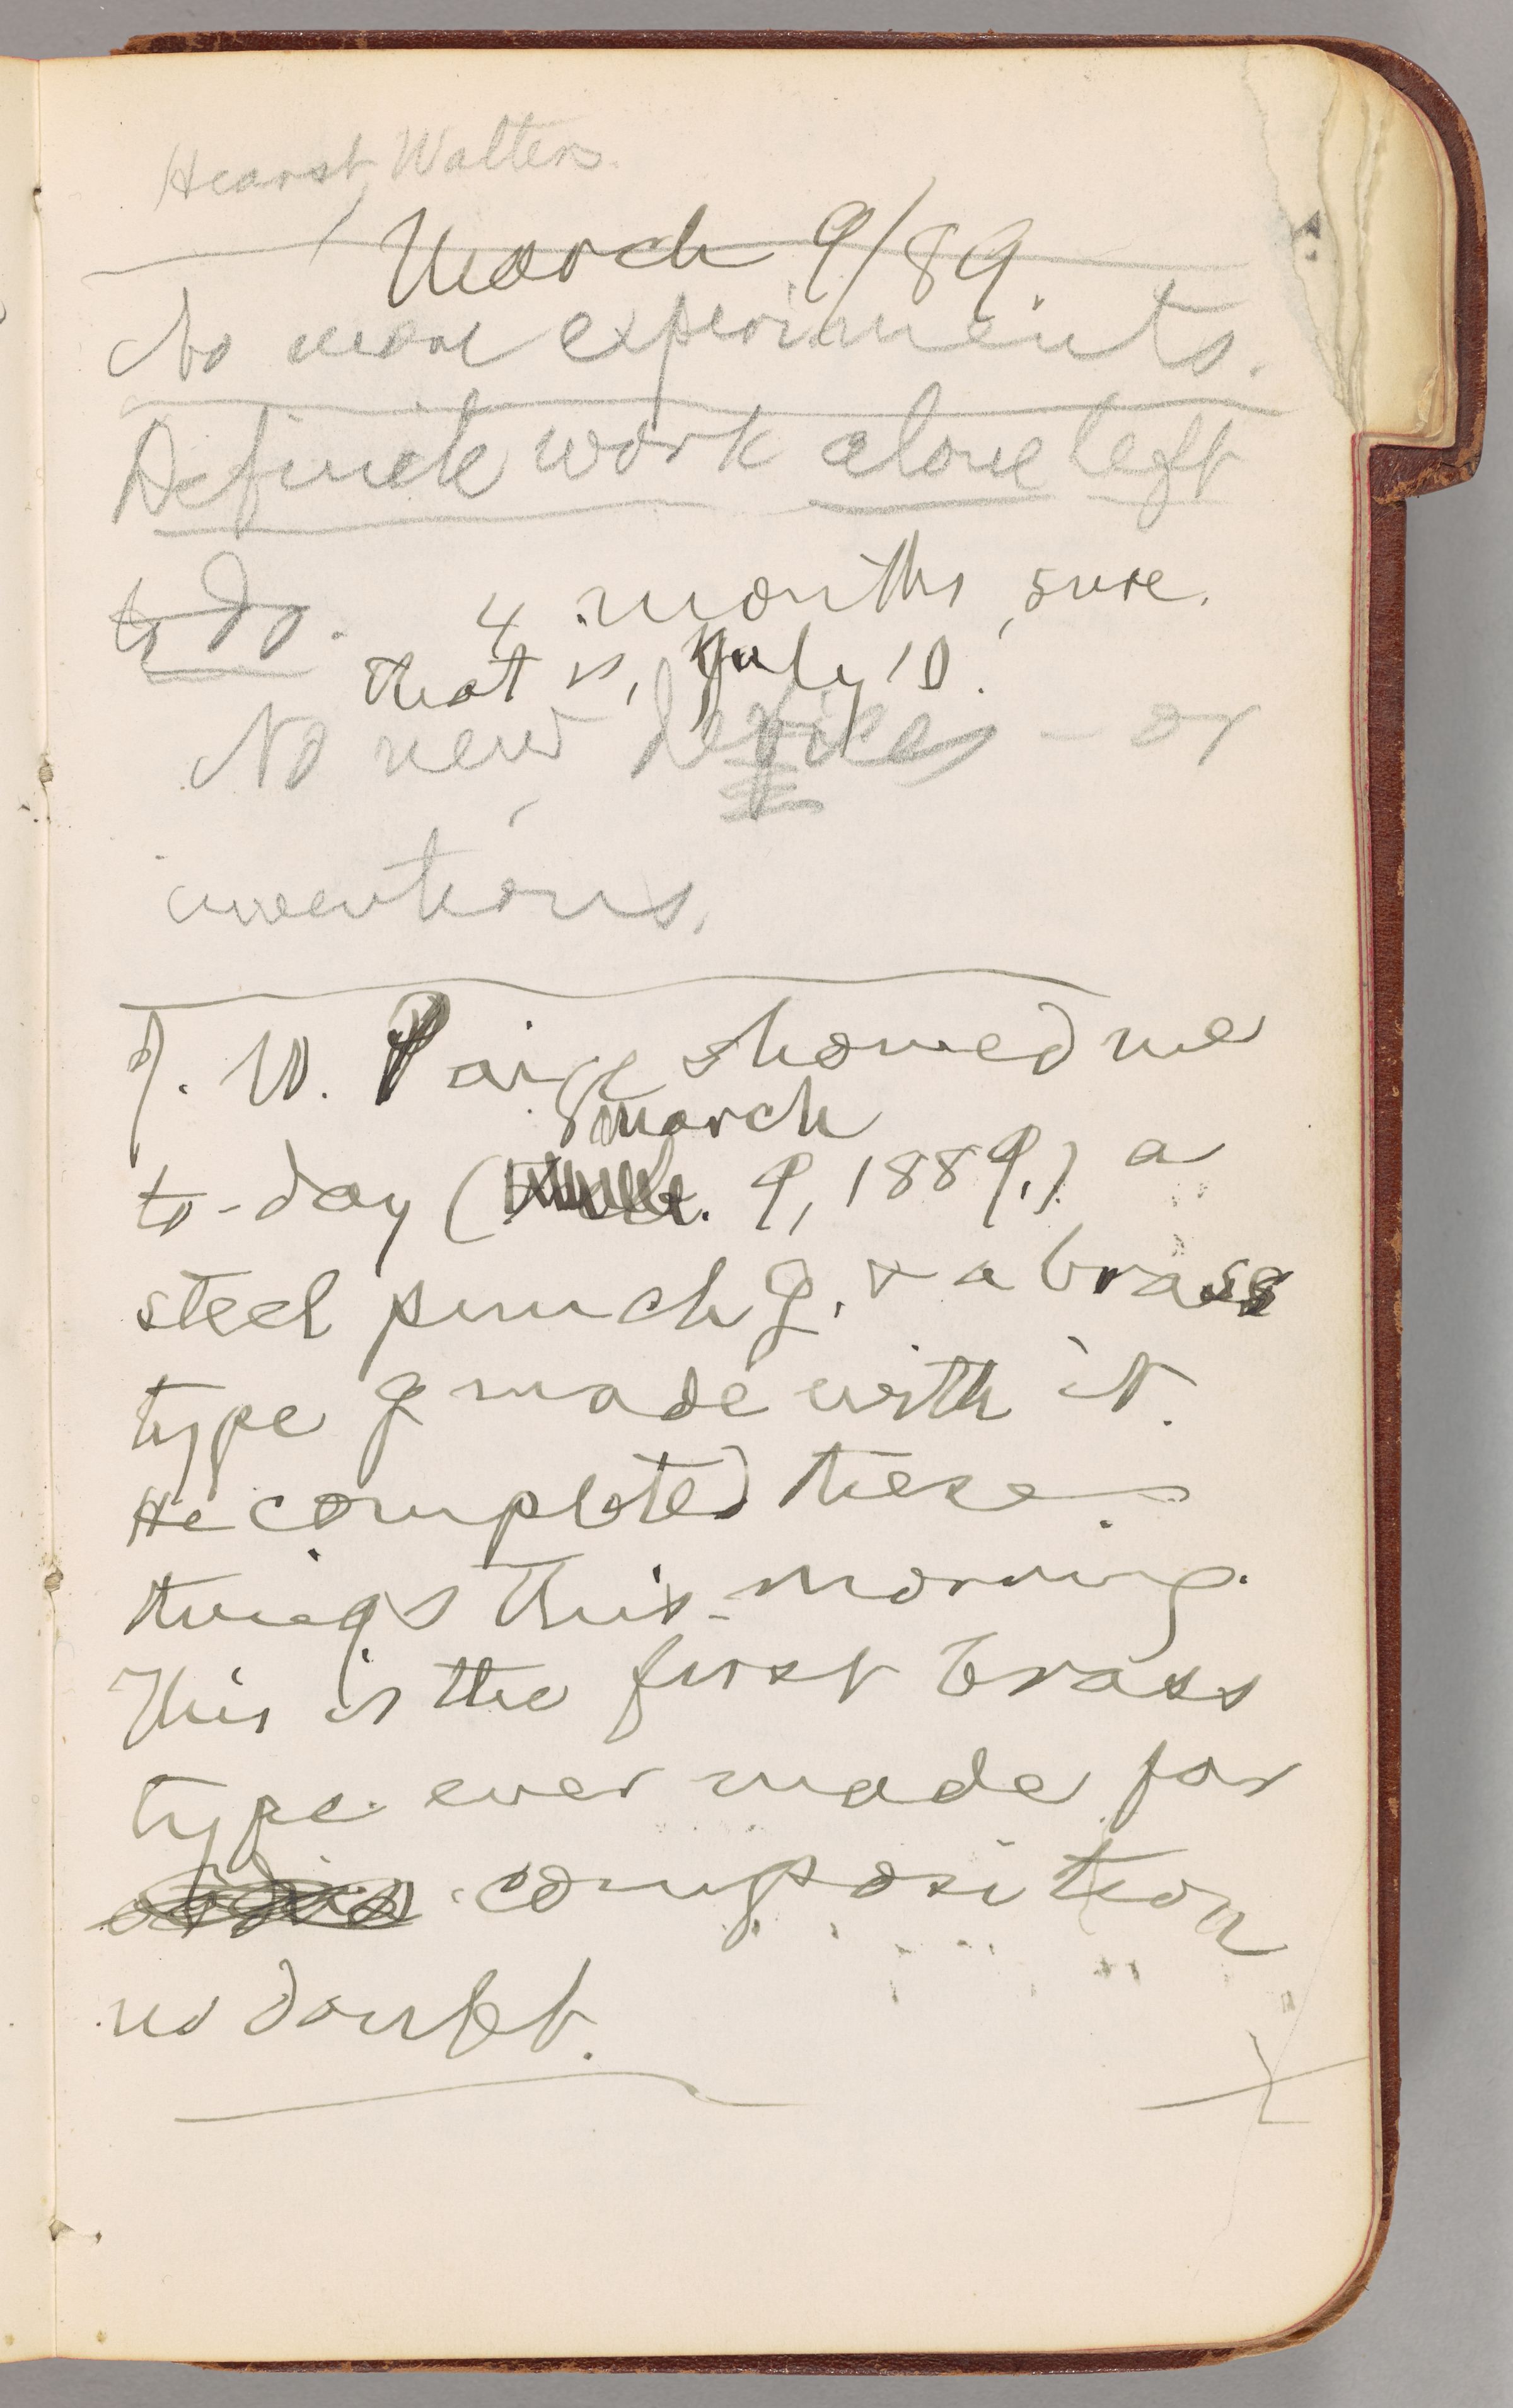 Hearst, Walters.
March 9/89.
No more experiments.
Definite work alone left
to do. 4 months, sure.
that is, July 10.
No new devices – or
inventions.
J. W. Paige showed me
March
to-day ( 9, 1889,) a
steel punch g. & a brass
type g made with it.
He completed these
things this morning.
This is the first brass
type ever made for
composition
no doubt.